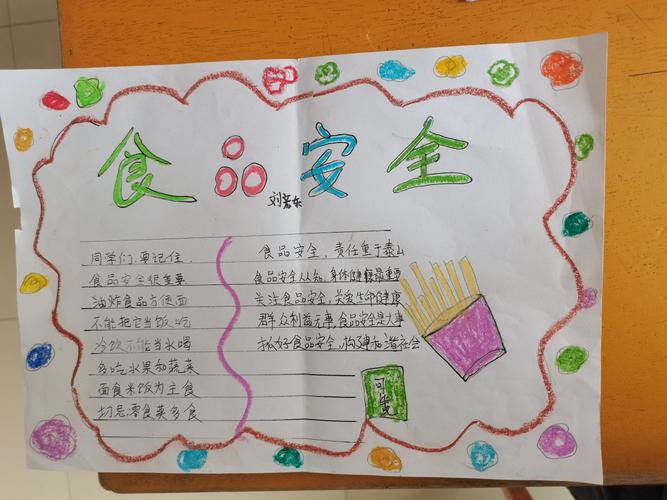 食品安全
刘宏东
同学们要记住
食品安全很重要
油炸食品方便面
不能把它当饭吃
冷饮不能当水喝
多吃水果和蔬菜
面食米饭为主食
切忌零食莫多食
食品安全，责任重于泰山
食品安全人人知，身体健康最重要
关注食品安全，关爱生命健康
群众利益无小事，食品安全是大事
抓好食品安全，构建和谐社会
可